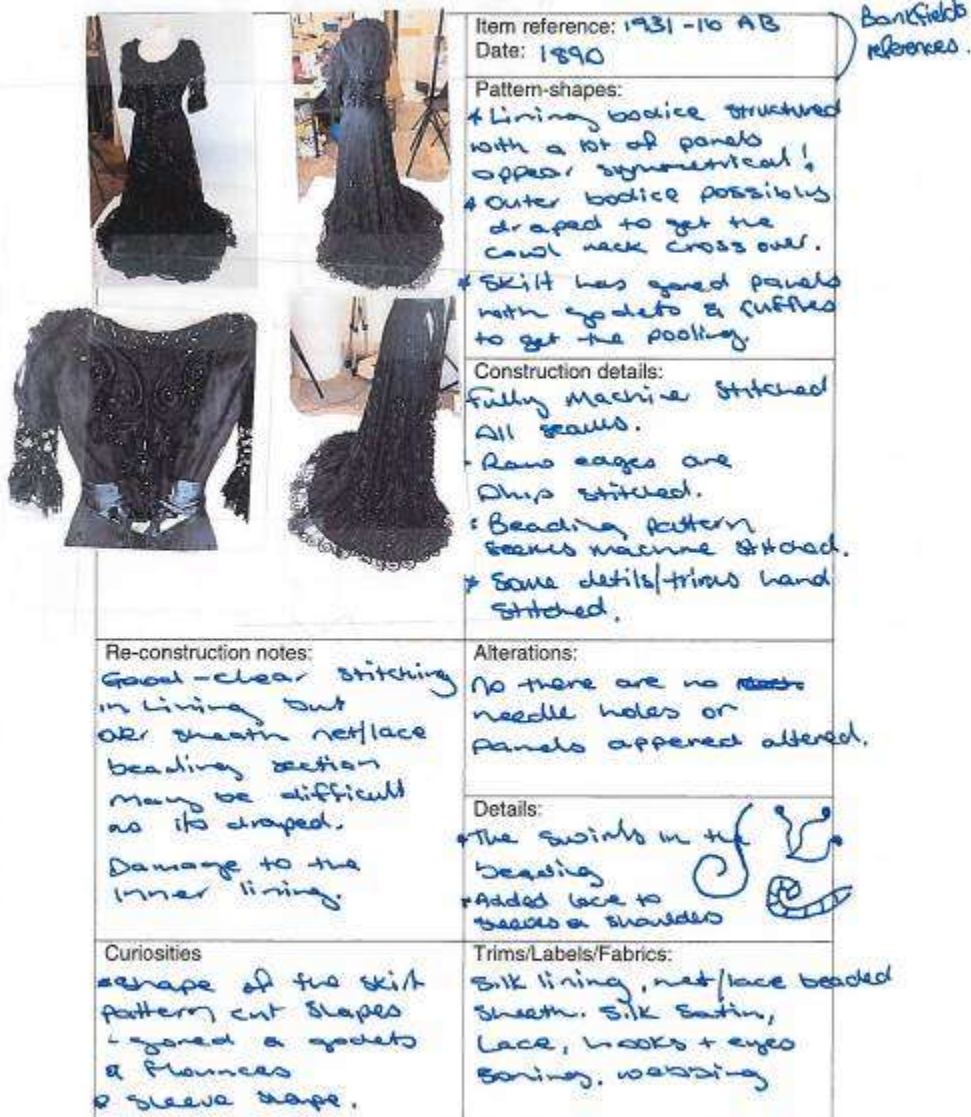 Item reference: 1931-16 AB
Date: 1890
Bankfields
references.
Pattern-shapes:
* Lining bodice structured
with a lot of panels
appear symmetrical!
* Outer bodice possibly
draped to get the
cowl neck cross over.
* Skilt has gored panels
with godets & ruffles
to get the pooling.
Construction details:
Fully Machine Stitched
All seams.
• Raw edges are
Whip stitched.
• Beading pattern
seems machine stitched.
* Some detils/trims hand
stitched.
Re-construction notes:
Good-clear stitching
in Lining but
over sheath net/lace
beading section
may be difficult
as its draped.
Damage to the
inner lining.
Alterations:
No there are no
needle holes or
panels appered altered.
Details:
• The swirls in the
beading
• Added lace to
sleeves & shoulders
Curiosities
* shape of the skirt
pattern cut shapes
- gored & godets
& flounces
& sleeve shape.
Trims/Labels/Fabrics:
Silk lining, net/lace beaded
sheath. Silk Satin,
Lace, hooks + eyes
boning. webbing